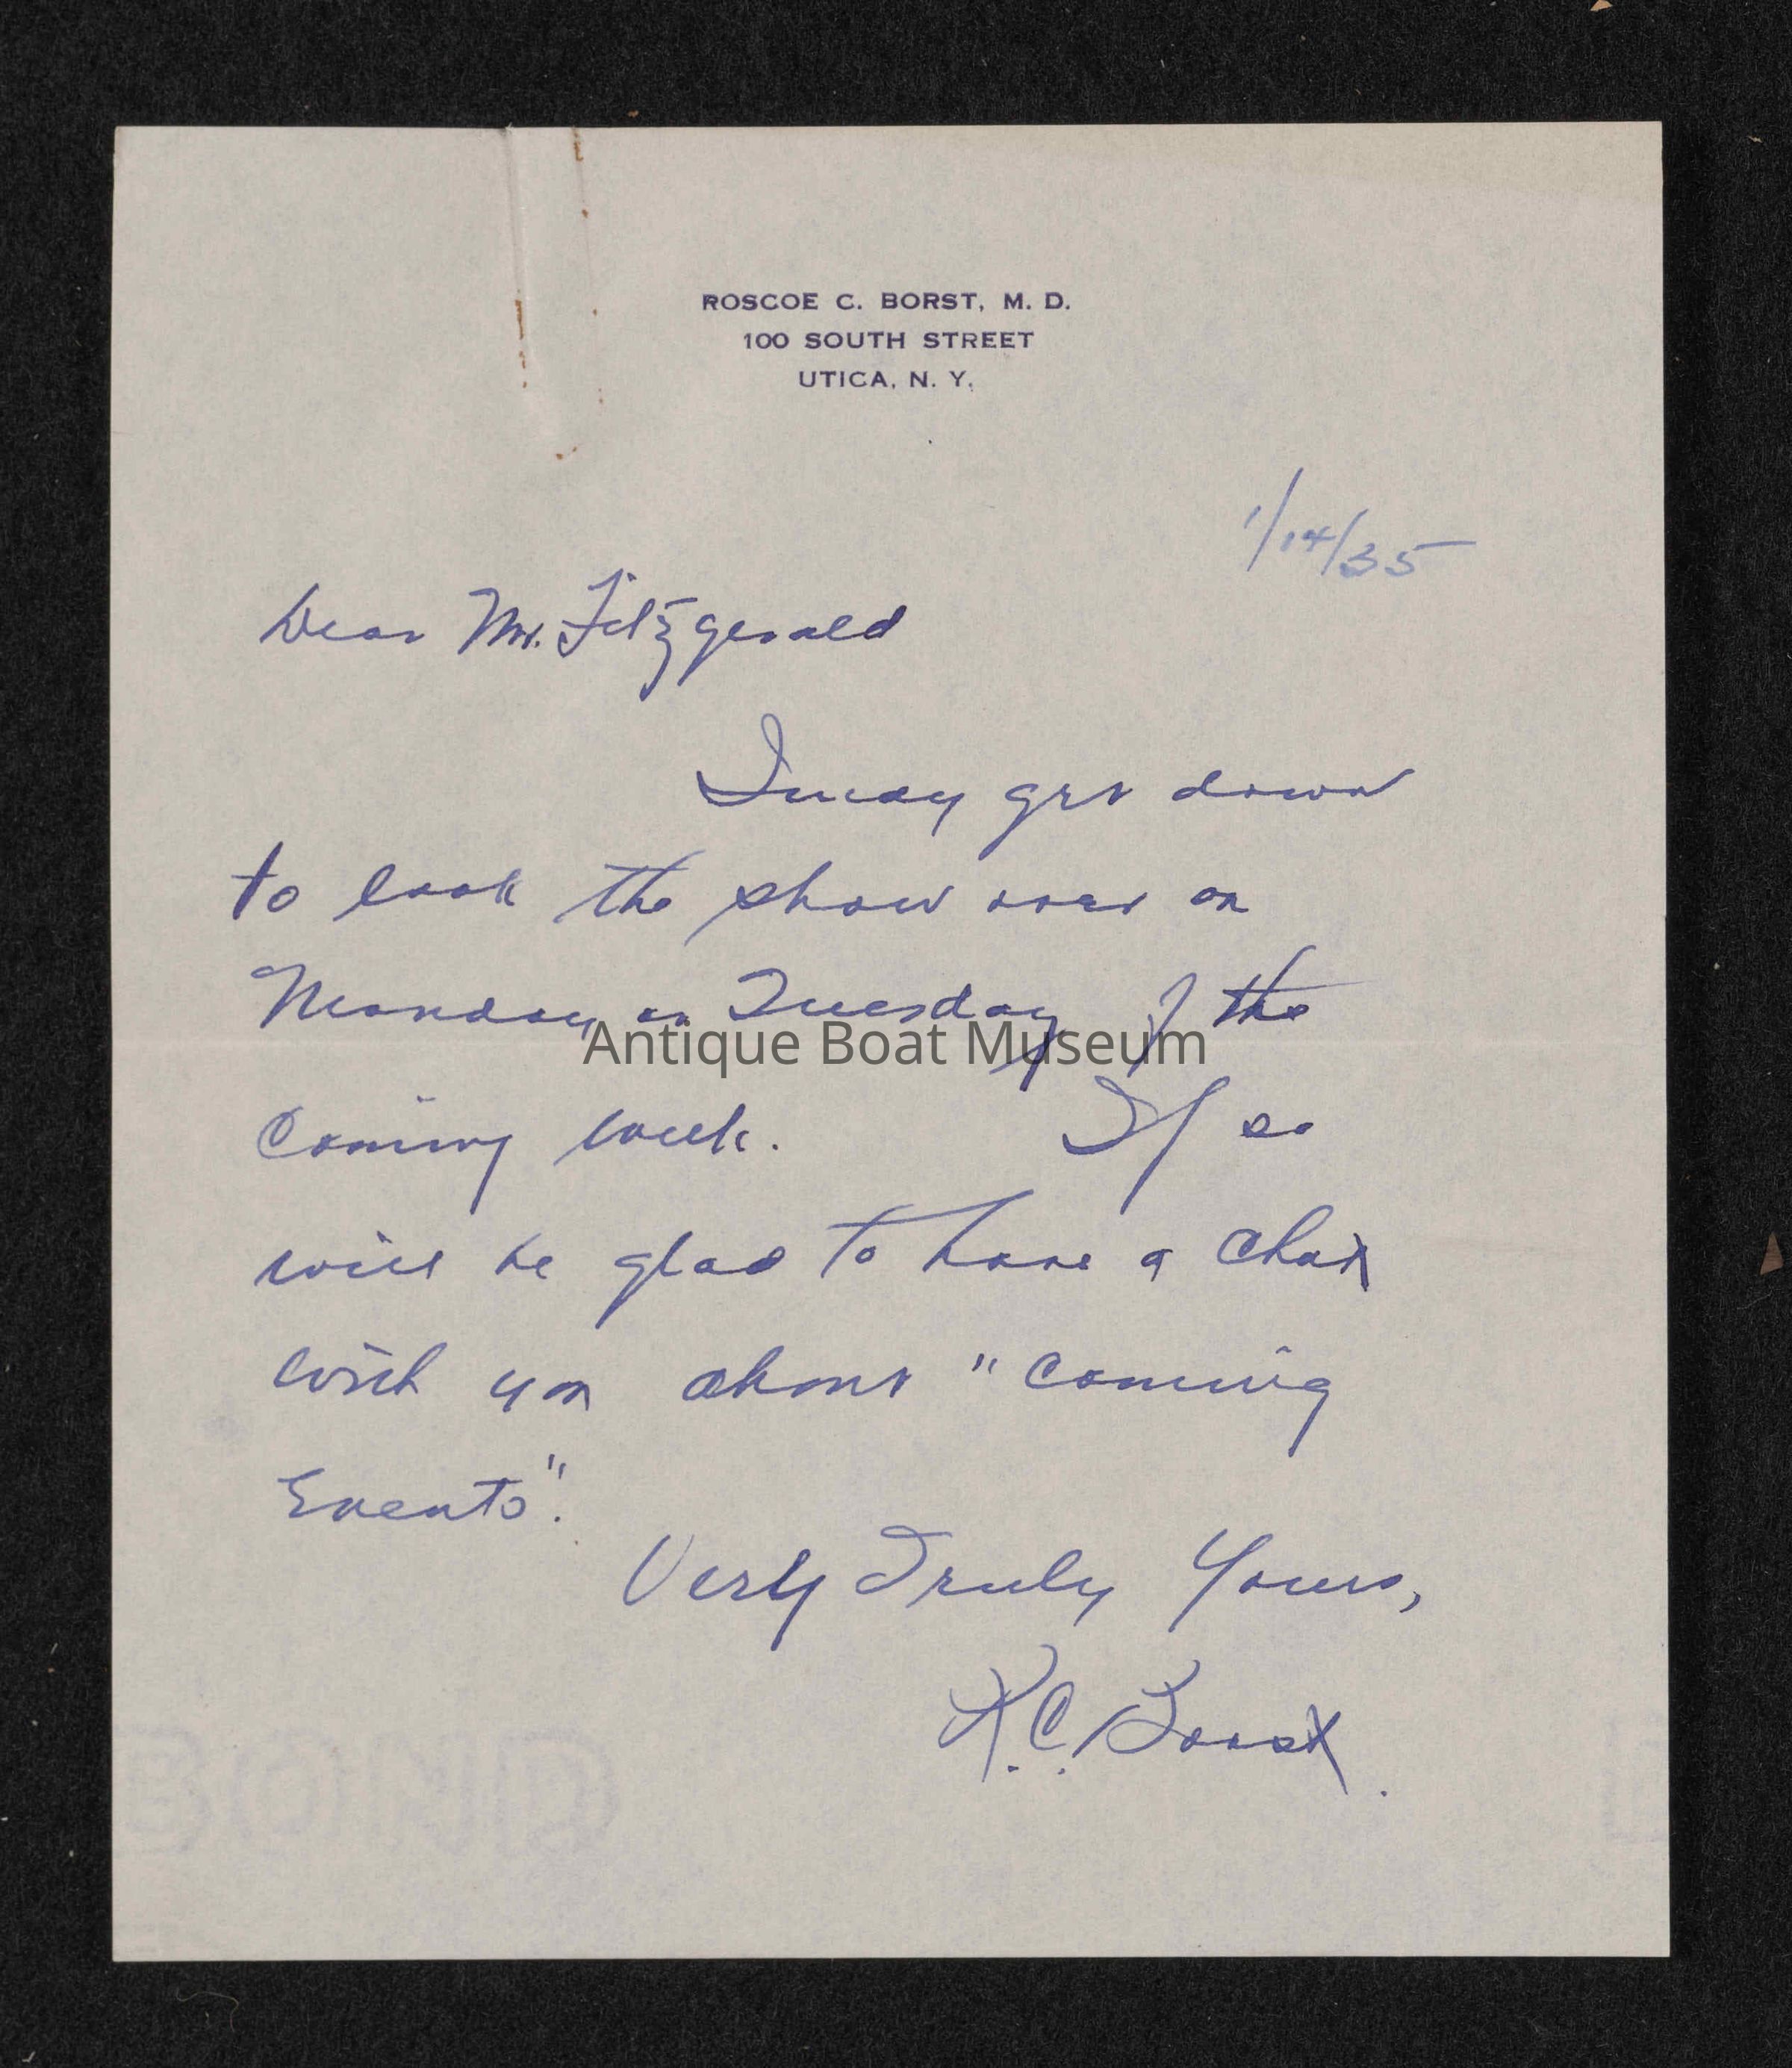 ROSCOE C. BORST, M. D.
100 SOUTH STREET
UTICA, N. Y.
1/14/35
Dear Mr. Fitzgerald
I may get down
to look the show over on
Monday or Tuesday of the
Antique Boat Museum
Coming week. If so
will be glad to have a chat
with you about "Coming
Events".
Very Truly Yours,
R.C. Borst.